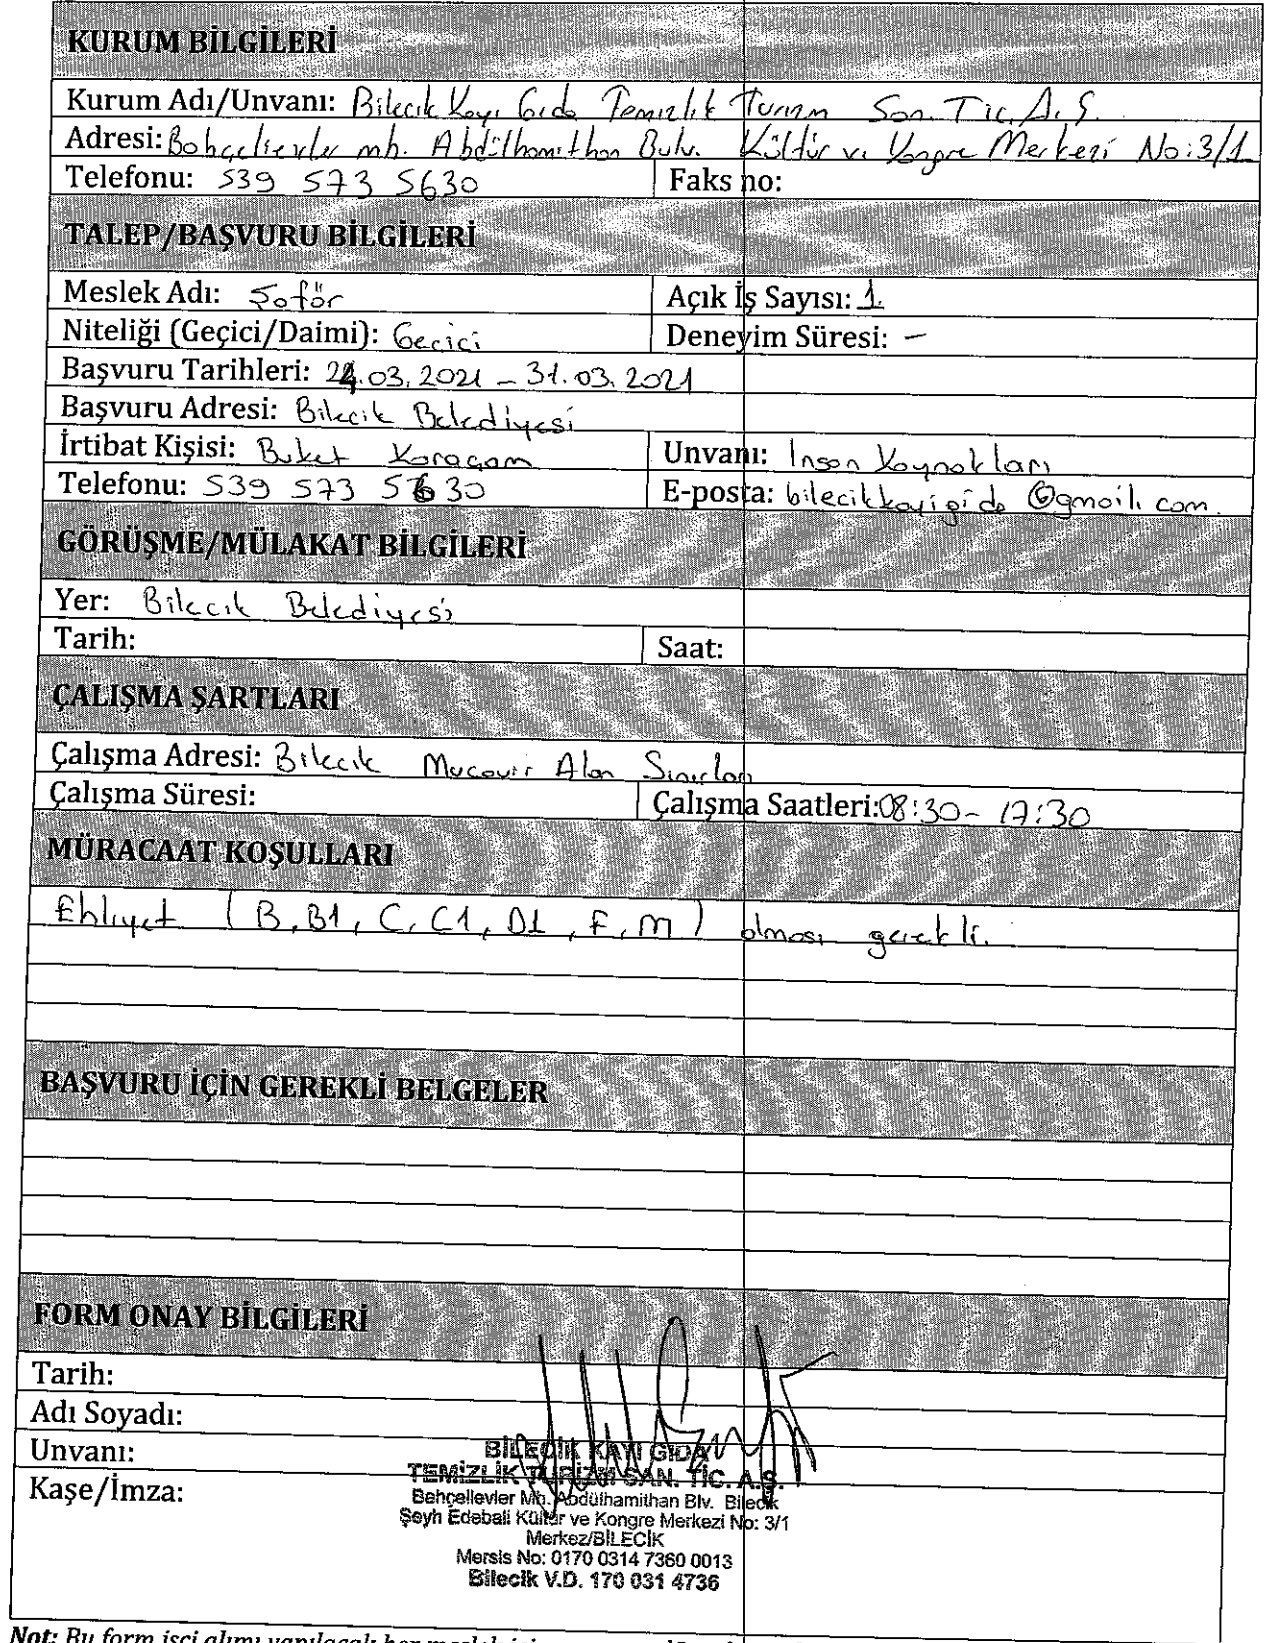 KURUM BİLGİLERİ
Kurum Adı/Unvanı: Bilecik Kayı Gıda Temizlik Turizm San. Tic. A.Ş.
Adresi: Bahçelievler mh. Abdülhamithan Bulv. Kültür ve Kongre Merkezi No:3/1
Telefonu: 539 573 5630 Faks no:
TALEP/BAŞVURU BİLGİLERİ
Meslek Adı: Şoför Açık İş Sayısı: 1
Niteliği (Geçici/Daimi): Geçici Deneyim Süresi: –
Başvuru Tarihleri: 24.03.2021 – 31.03.2021
Başvuru Adresi: Bilecik Belediyesi
İrtibat Kişisi: Buket Karaçam Unvanı: İnsan Kaynakları
Telefonu: 539 573 5630 E-posta: bilecikkayigida@gmail.com
GÖRÜŞME/MÜLAKAT BİLGİLERİ
Yer: Bilecik Belediyesi
Tarih: Saat:
ÇALIŞMA ŞARTLARI
Çalışma Adresi: Bilecik Mücavir Alan Sınırları
Çalışma Süresi: Çalışma Saatleri: 08:30 - 17:30
MÜRACAAT KOŞULLARI
Ehliyet (B, B1, C, C1, D1, F, M) olması gerekli.
BAŞVURU İÇİN GEREKLİ BELGELER
FORM ONAY BİLGİLERİ
Tarih:
Adı Soyadı:
Unvanı:
Kaşe/İmza:
BİLECİK KAYI GIDA
TEMİZLİK TURİZM SAN. TİC. A.Ş.
Bahçelievler Mh. Abdülhamithan Blv. Bilecik
Şeyh Edebali Kültür ve Kongre Merkezi No: 3/1
Merkez/BİLECİK
Mersis No: 0170 0314 7360 0013
Bilecik V.D. 170 031 4736
Not: Bu form işçi alımı yapılacak her meslek için